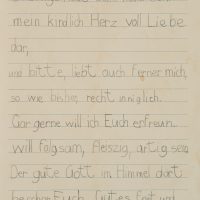 mein kindlich Herz voll Liebe
dar,
und bitte, liebt auch ferner mich,
so wie bisher, recht inniglich.
Gar gerne will ich Euch erfreun
will folgsam, fleiszig, artig sein,
Der gute Gott im Himmel dort
Euch Gutes fort und